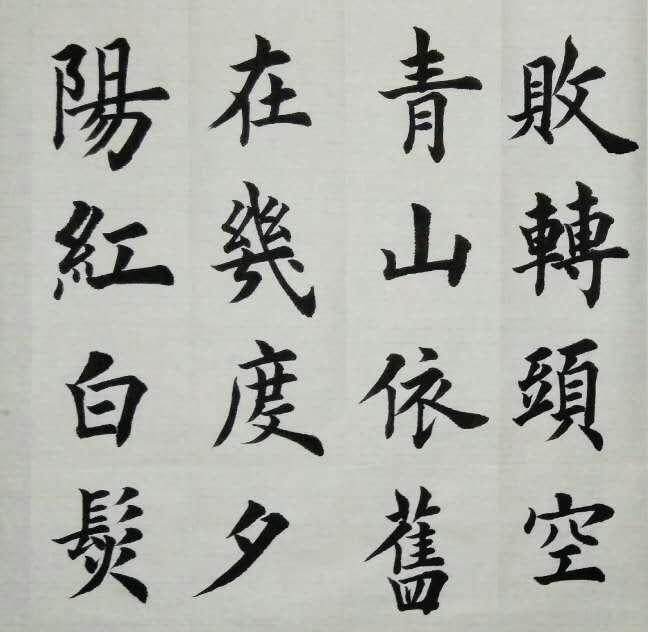 敗轉頭空
青山依舊
在幾度夕
陽紅白髮